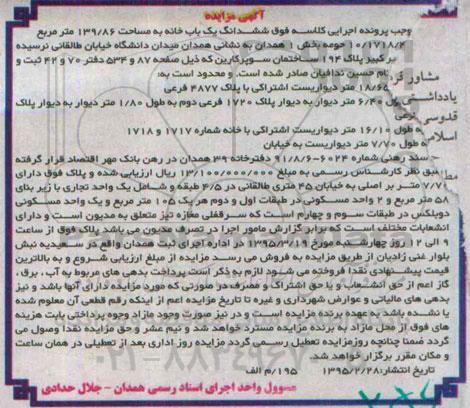 آگهی مزایده
وجب پرونده اجرایی کلاسه فوق ششدانگ یک باب خانه به مساحت ۱۳۹/۸۶ متر مربع
۱۰/۱۷۱۸/۲ حومه بخش ۱ همدان به نشانی همدان میدان دانشگاه خیابان طالقانی نرسیده
بر کبیر پلاک ۱۹۴ ساختمان سوپرکارین که ذیل صفحه ۸۷ و ۵۳۴ دفتر ۷۰ و ۴۲ ثبت و
نام حسین ندافیان صادر شده است. و محدود است به:
۱۸/۶۵ متر دیواریست اشتراکی با پلاک ۴۸۷۷ فرعی
ول ۶/۴۰ متر دیوار به دیوار پلاک ۱۷۲۰ فرعی دوم به طول ۱/۸۰ متر دیوار به دیوار پلاک
فرعی
به طول ۱۶/۱۰ متر دیواریست اشتراکی با خانه شماره ۱۷۱۷ و ۱۷۱۸
به طول ۷/۷۰ متر دیواریست به خیابان
سند رهنی شماره ۶۰۲۴-۹۱/۸/۶ دفترخانه ۳۹ همدان در رهن بانک مهر اقتصاد قرار گرفته
طبق نظر کارشناس رسمی به مبلغ ۱۳/۱۰۰/۰۰۰/۰۰۰ ریال ارزیابی شده و پلاک فوق دارای
۷/۷۰ متر بر اصلی به خیابان ۴۵ متری طالقانی در ۴/۵ طبقه و شامل یک واحد تجاری با زیر بنای
۵۸ متر مربع و ۲ واحد مسکونی در طبقات اول و دوم هر یک ۱۰۵ متر مربع و یک واحد مسکونی
دوبلکس در طبقات سوم و چهارم است که سرقفلی مغازه نیز متعلق به مدیون است و دارای
انشعابات مختلف است که برابر گزارش مامور اجرا در تصرف مدیون می باشد پلاک فوق از ساعت
۹ الی ۱۲ روز چهارشنبه مورخ ۱۳۹۵/۳/۱۹ در اداره اجرای ثبت همدان واقع در سعیدیه نبش
بلوار غنی زادیان از طریق مزایده به فروش می رسد مزایده از مبلغ ارزیابی شروع و به بالاترین
قیمت پیشنهادی نقدا فروخته می شود لازم به ذکر است پرداخت بدهی های مربوط به آب، برق،
گاز اعم از حق انشعاب و یا حق اشتراک و مصرف در صورتی که مورد مزایده دارای آنها باشد و نیز
بدهی های مالیاتی و عوارض شهرداری و غیره تا تاریخ مزایده اعم از اینکه رقم قطعی آن معلوم شده
یا نشده باشد به عهده برنده مزایده است و در نیز صورت وجود مازاد وجوه پرداختی بابت هزینه
های فوق از محل مازاد به برنده مزایده مسترد خواهد شد و نیم عشر و حق مزایده نقدا وصول می
گردد ضمنا چنانچه روزمزایده تعطیل رسمی گردد مزایده روز اداری بعد از تعطیلی در همان ساعت
و مکان مقرر برگزار خواهد شد.
تاریخ انتشار: ۱۳۹۵/۲/۲۸ ۱۹۵/م الف
مسوول واحد اجرای اسناد رسمی همدان - جلال حدادی